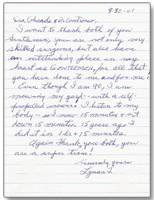 9-30-01
Drs. Orlando & DiContiour,
I want to thank both of you
Gentlemen, you are not only very
skilled surgeons, but also have
an outstanding place in my
heart as GENTLEMEN, for all that
you have done to me and for me!
Even though I am 90, I am
mowing my yard - with a self-
propelled mower. I listen to my
body - and mow 15 minutes + sit
down 15 minutes. 15 years ago I
did it in 1 hr + 15 minutes.
Again thank you both, you
are a super team!
Sincerely yours
Lyman